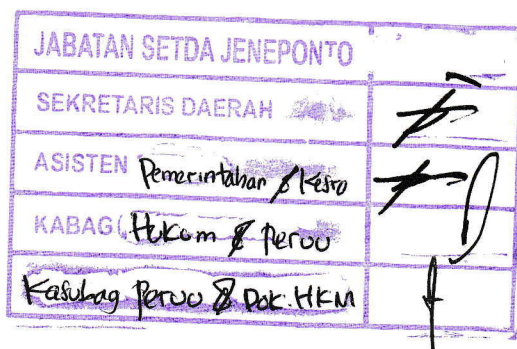 JABATAN SETDA JENEPONTO
SEKRETARIS DAERAH
ASISTEN Pemerintahan & Kesra
KABAG. Hukum & Peruu
Kasubag Peruu & Dok. HKM